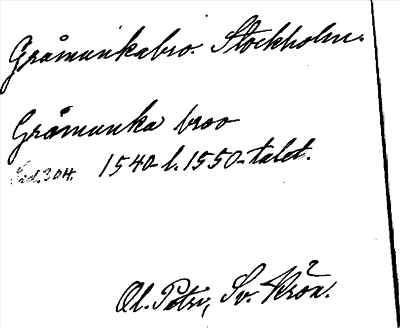 Gråmunkabro. Stockholm.
Gråmunka broo
Sid. 304. 1540- l. 1550-talet.
Ol. Petri, Sv. Krön.